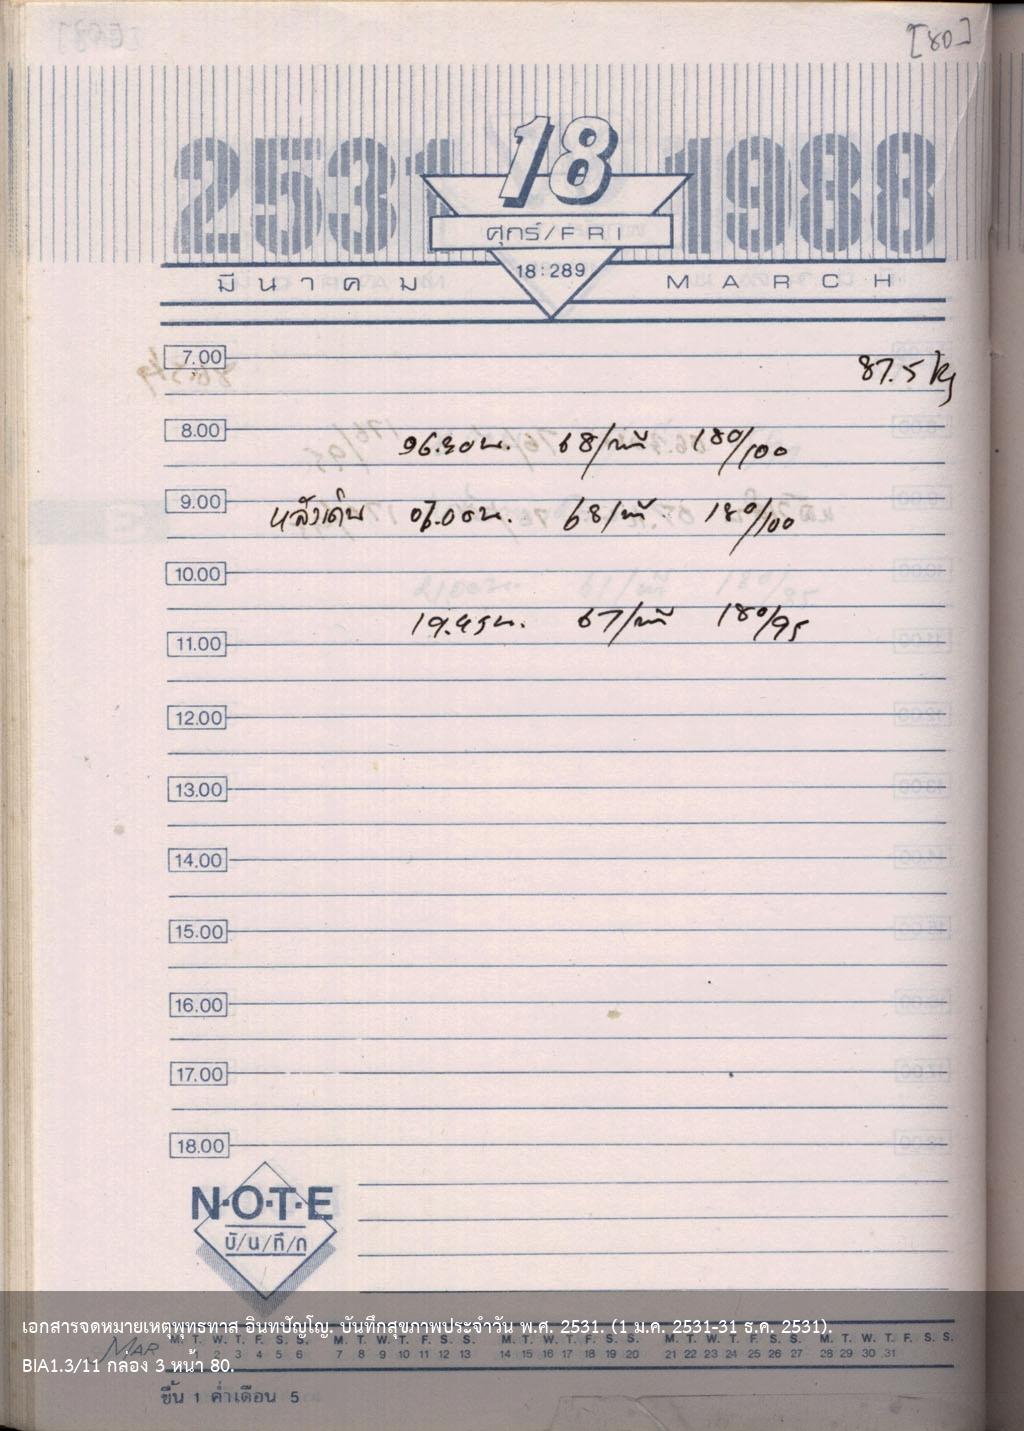 [๘๐]
2531 18 1988
ศุกร์/FRI
มีนาคม 18:289 MARCH
7.00
87.5 kg
8.00
06.20น. 68/นาที 180/100
9.00
หลังเดิน 07.00น. 68/นาที 180/100
10.00
19.45น. 67/นาที 180/95
11.00
12.00
13.00
14.00
15.00
16.00
17.00
18.00
N·O·T·E
บั/น/ทึ/ก
เอกสารจดหมายเหตุพุทธทาส อินทปัญโญ. บันทึกสุขภาพประจำวัน พ.ศ. 2531. (1 ม.ค. 2531-31 ธ.ค. 2531).
MAR
M. T. W. T. F. S. S. M. T. W. T. F. S. S. M. T. W. T. F. S. S. M. T. W. T. F. S. S. M. T. W. T. F. S. S.
1 2 3 4 5 6 7 8 9 10 11 12 13 14 15 16 17 18 19 20 21 22 23 24 25 26 27 28 29 30 31
BIA1.3/11 กล่อง 3 หน้า 80.
ขึ้น 1 ค่ำเดือน 5